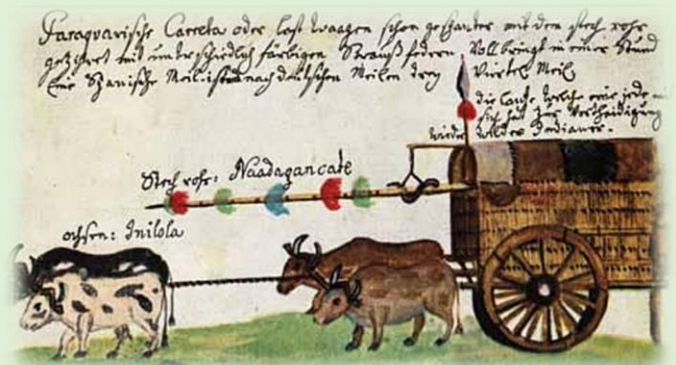 Paraquarische Carreta oder last waagen schon gespanter mit dem stech rohr
gezihret mit unterschiedlich färbigen Strauß federn. Voll bringt in einer Stund
Eine Spanische Meil ist nach deutschen Meilen drey Viertel Meil
die lanze welche eine jede
sich hat zur Vertheidigung
wieder wilder Indianer.
Stech rohr: Naadagancate
ochsen: Inilola